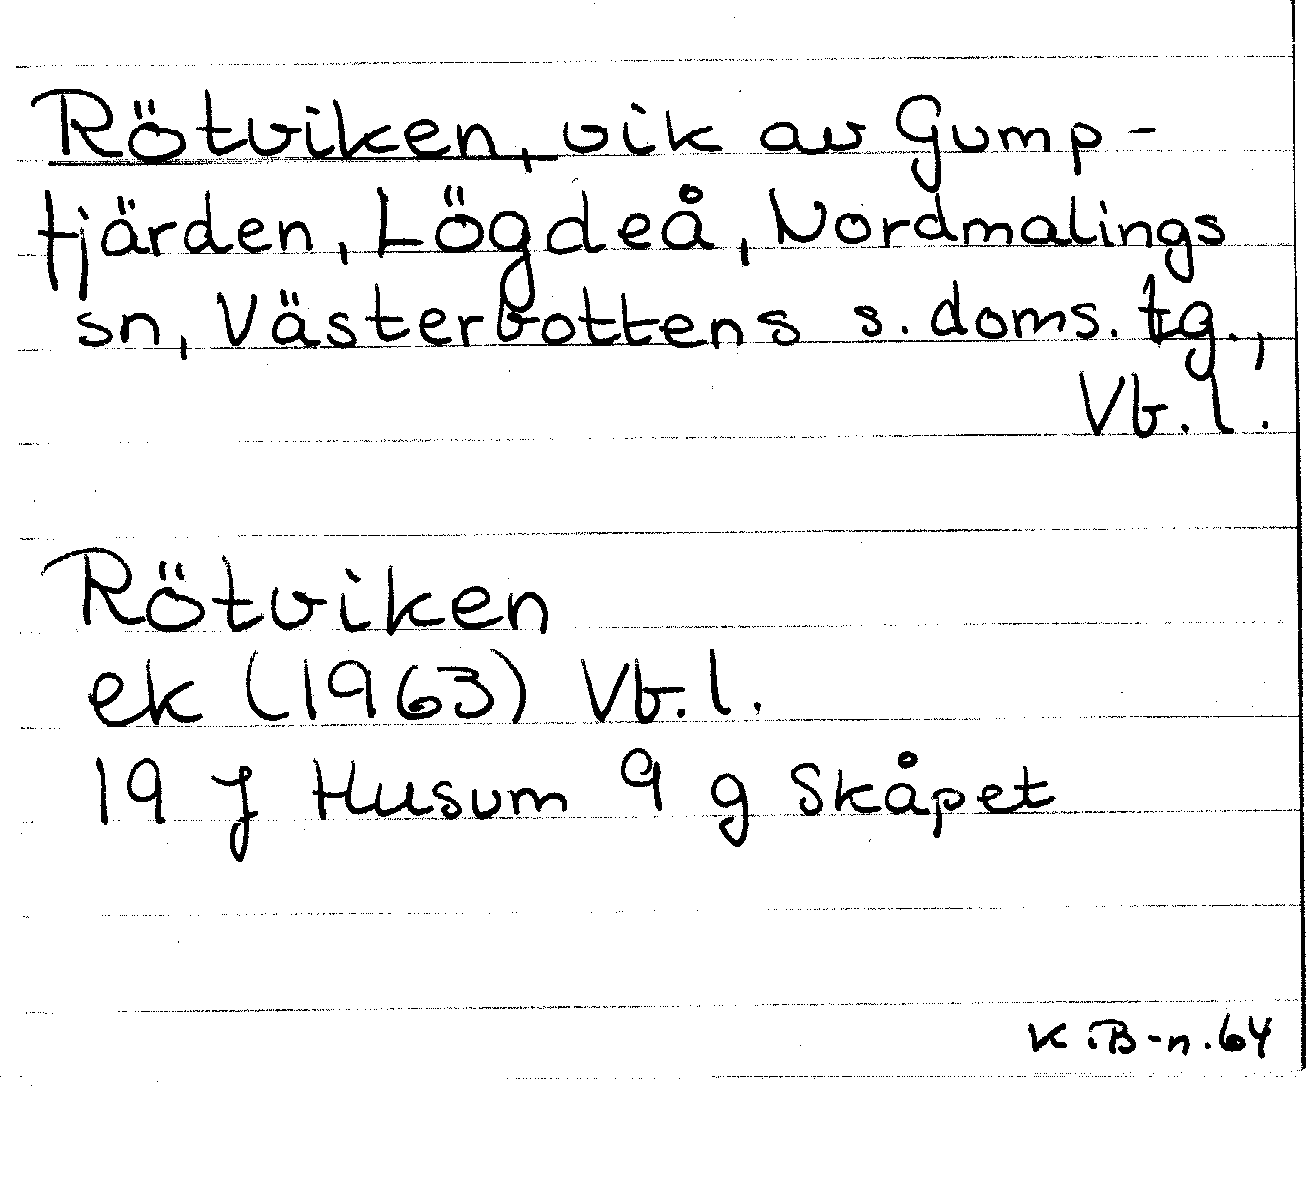 Rötviken, vik av Gump-
fjärden, Lögdeå, Nordmalings
sn, Västerbottens s. doms. tg.,
Vb. l.
Rötviken
ek (1963) Vb. l.
19 J Husum 9 g Skåpet
K. B-n. 64